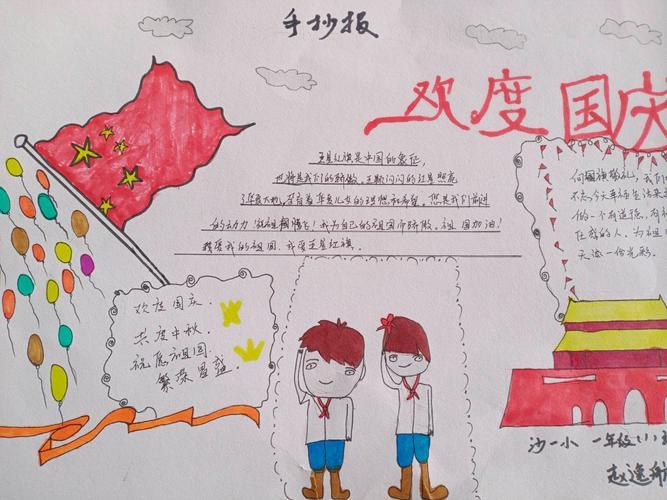 手抄报
欢度国庆
五星红旗是中国的象征,
也将是我们的骄傲。五颗闪闪的红星照亮
了华夏大地,承载着华夏儿女的理想和希望。您是我们前进
的动力 就祖国腾飞!我为自己的祖国而骄傲。祖国加油!
我爱我的祖国,我爱五星红旗。
向国旗敬礼,我们
不忘今天幸福生活来之
做一个有道德、有
在窝的人、为祖
天添一份光彩。
欢度国庆.
共度中秋.
祝愿祖国.
繁荣昌盛.
沙一小 一年级(1)班
赵逸舟